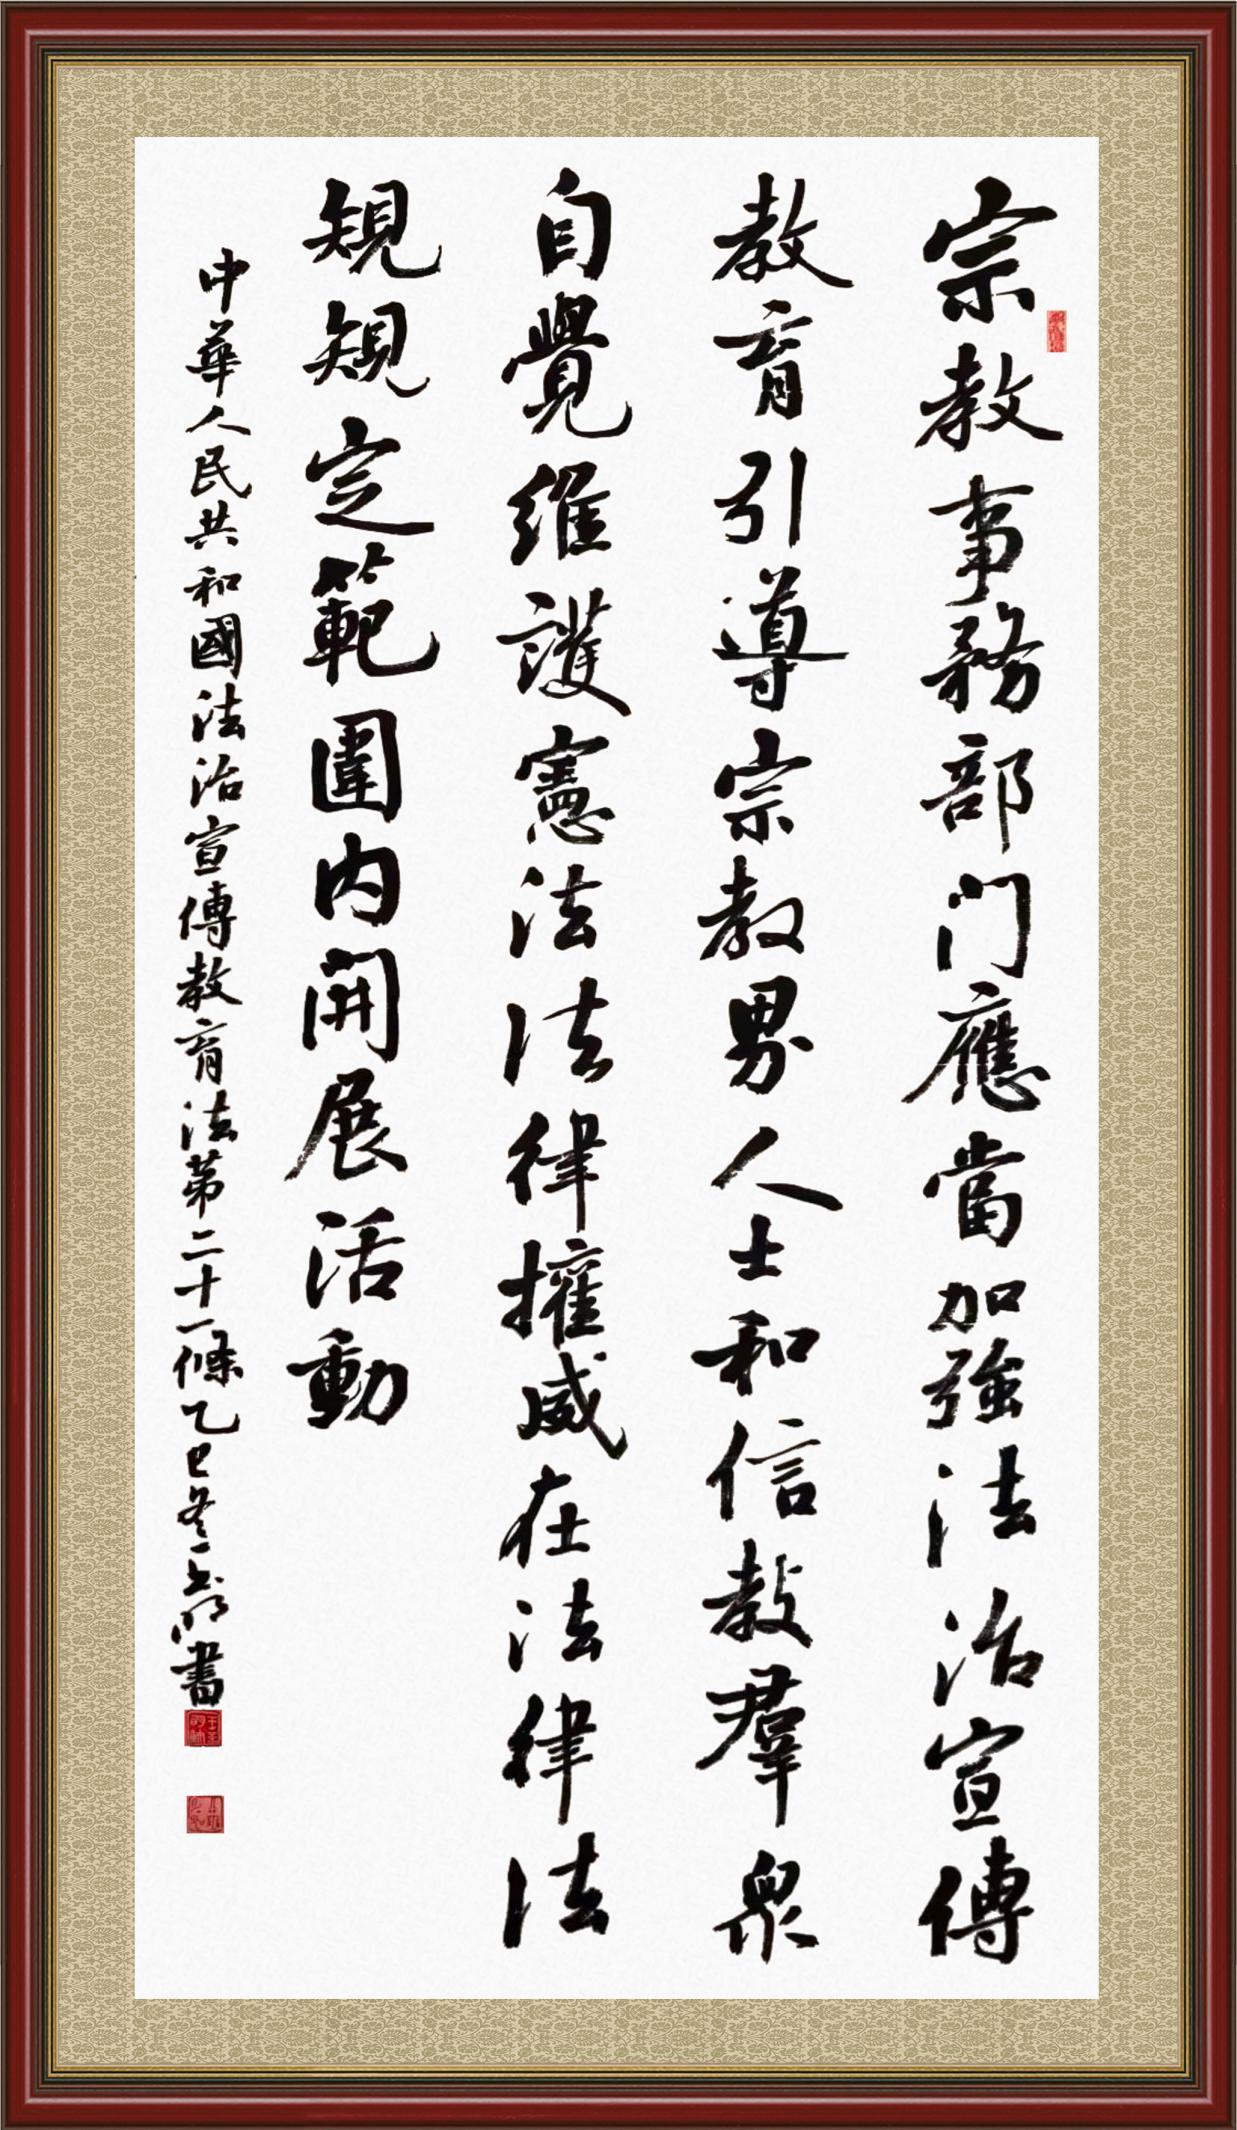 宗教事務部门應當加強法治宣傳
教育引導宗教界人士和信教羣衆
自覺維護憲法法律權威在法律法
規規定範圍内開展活動
中華人民共和國法治宣傳教育法第二十一條乙巳冬書